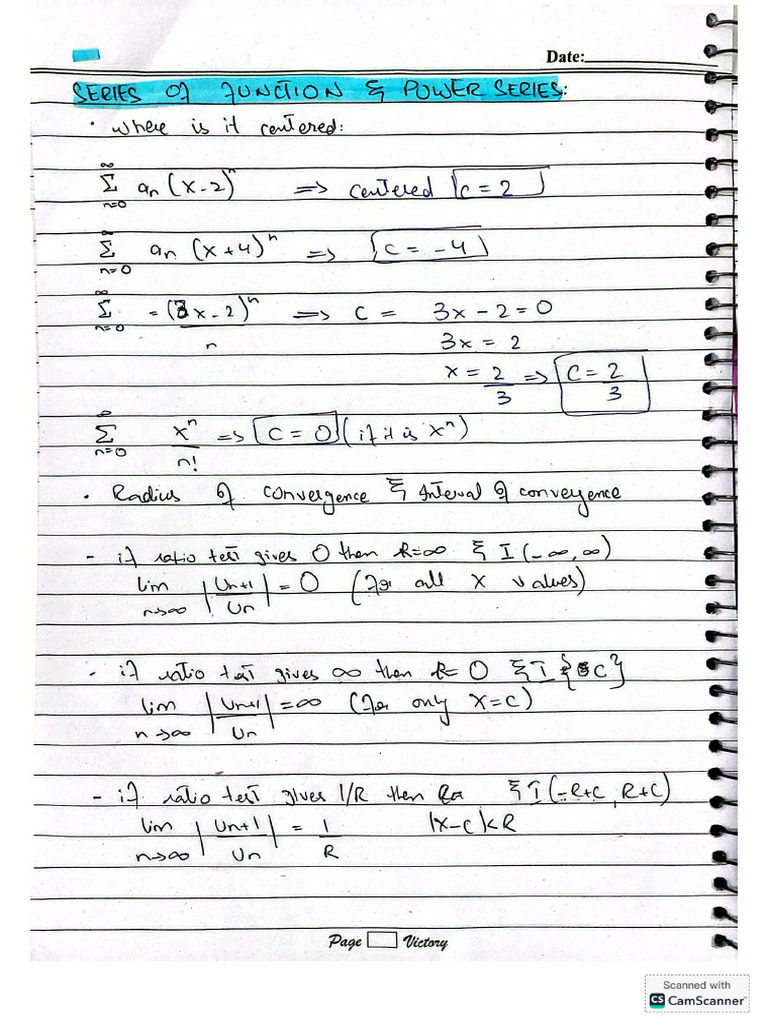 Date:
SERIES OF FUNCTION & POWER SERIES:
• Where is it centered:
∞ Σ n=0 an (x-2)^n => centered c = 2
∞ Σ n=0 an (x+4)^n => c = -4
∞ Σ n=0 = (3x-2)^n / n => c = 3x - 2 = 0
3x = 2
x = 2/3 => c = 2/3
∞ Σ n=0 x^n / n! => c = 0 (if it is x^n)
• Radius of convergence & Interval of convergence
- if ratio test gives 0 then R=∞ & I (-∞, ∞)
lim n->∞ |Un+1 / Un| = 0 (For all x values)
- if ratio test gives ∞ then R= 0 & I {c}
lim n->∞ |Un+1 / Un| = ∞ (For only x=c)
- if ratio test gives 1/R then & I (-R+C, R+C)
lim n->∞ |Un+1 / Un| = 1/R |x-c|<R
Page Victory
Scanned with
CS CamScanner